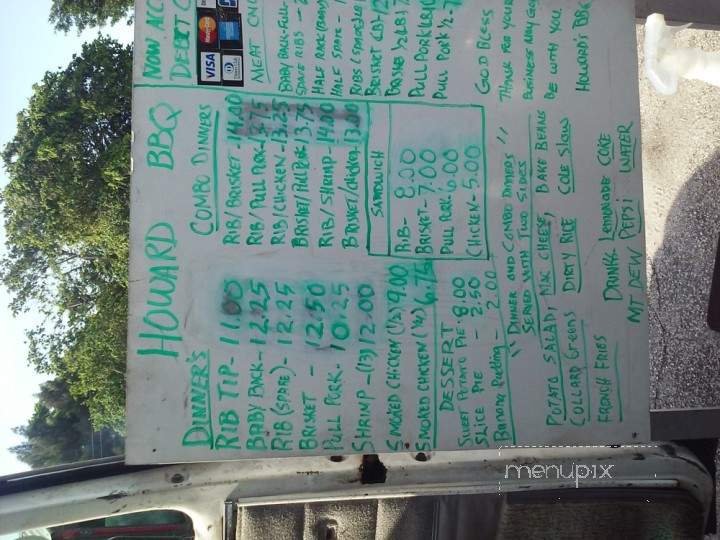 HOWARD BBQ
NOW ACC
DEBIT C
VISA
DINNER'S
RIB TIP - 11.00
BABY BACK - 12.25
RIB (SPARE) - 12.25
BRISKET - 12.50
PULL PORK - 10.25
SHRIMP - (13) 12.00
SMOKED CHICKEN (1/2) 9.00
SMOKED CHICKEN (1/4) 6.75
DESSERT
SWEET POTATO PIE - 8.00
SLICE PIE - 2.50
Banana Pudding - 2.00
COMBO DINNERS
RIB/BRISKET - 14.00
RIB/PULL PORK - 13.75
RIB/CHICKEN - 13.25
BRISKET/PULL PORK 13.75
RIB/SHRIMP - 14.00
BRISKET/chicken - 13.00
SANDWICH
RIB - 8.00
BRISKET - 7.00
PULL PORK 6.00
CHICKEN - 5.00
MEAT ONL
BABY BACK - FULL -
SPARE RIBS - 2
HALF RACK (BABY
HALF SPARE - 1
RIBS (SPARE)
BRISKET LB) - 12
BRISKET 1/2 LB) 7
PULL PORK LB) 
PULL PORK 1/2 - 7
GOD BLESS
THANK FOR YOUR
BUSINESS MAY GOD
BE WITH YOU
HOWARD'S BBQ
"DINNER AND COMBO DINNERS"
SERVED WITH TWO SIDES
POTATO SALAD, MAC CHEESE, BAKE BEANS
COLLARD GREENS DIRTY RICE COLE SLAW
FRENCH FRIES
DRINKS LEMONADE COKE
MT DEW PEPSI WATER
menupix